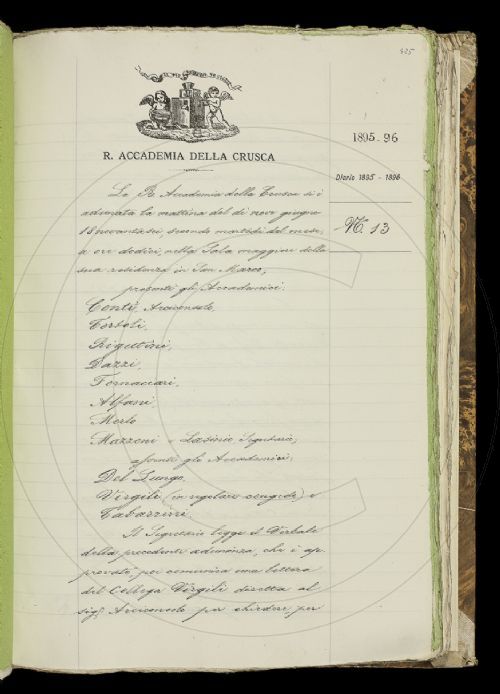 425
R. ACCADEMIA DELLA CRUSCA
1895-96
Diario 1895 - 1896
N.° 13
La R. Accademia della Crusca si è
adunata la mattina del dì nove giugno
18novantasei secondo martedì del mese,
a ore dodici, nella Sala maggiore della
sua residenza in San Marco,
presenti gli Accademici:
Conti, Arciconsolo,
Tortoli,
Rigutini,
Dazzi,
Fornaciari,
Alfani,
Merlo
Mazzoni e Lasinio Segretario;
assenti gli Accademici:
Del Lungo,
Virgili (in regolare congedo) e
Tabarrini.
Il Segretario legge il Verbale
della precedente adunanza, che è ap-
provato; poi comunica una lettera
del Collega Virgili diretta al
sig.r Arciconsolo per chiedere, per